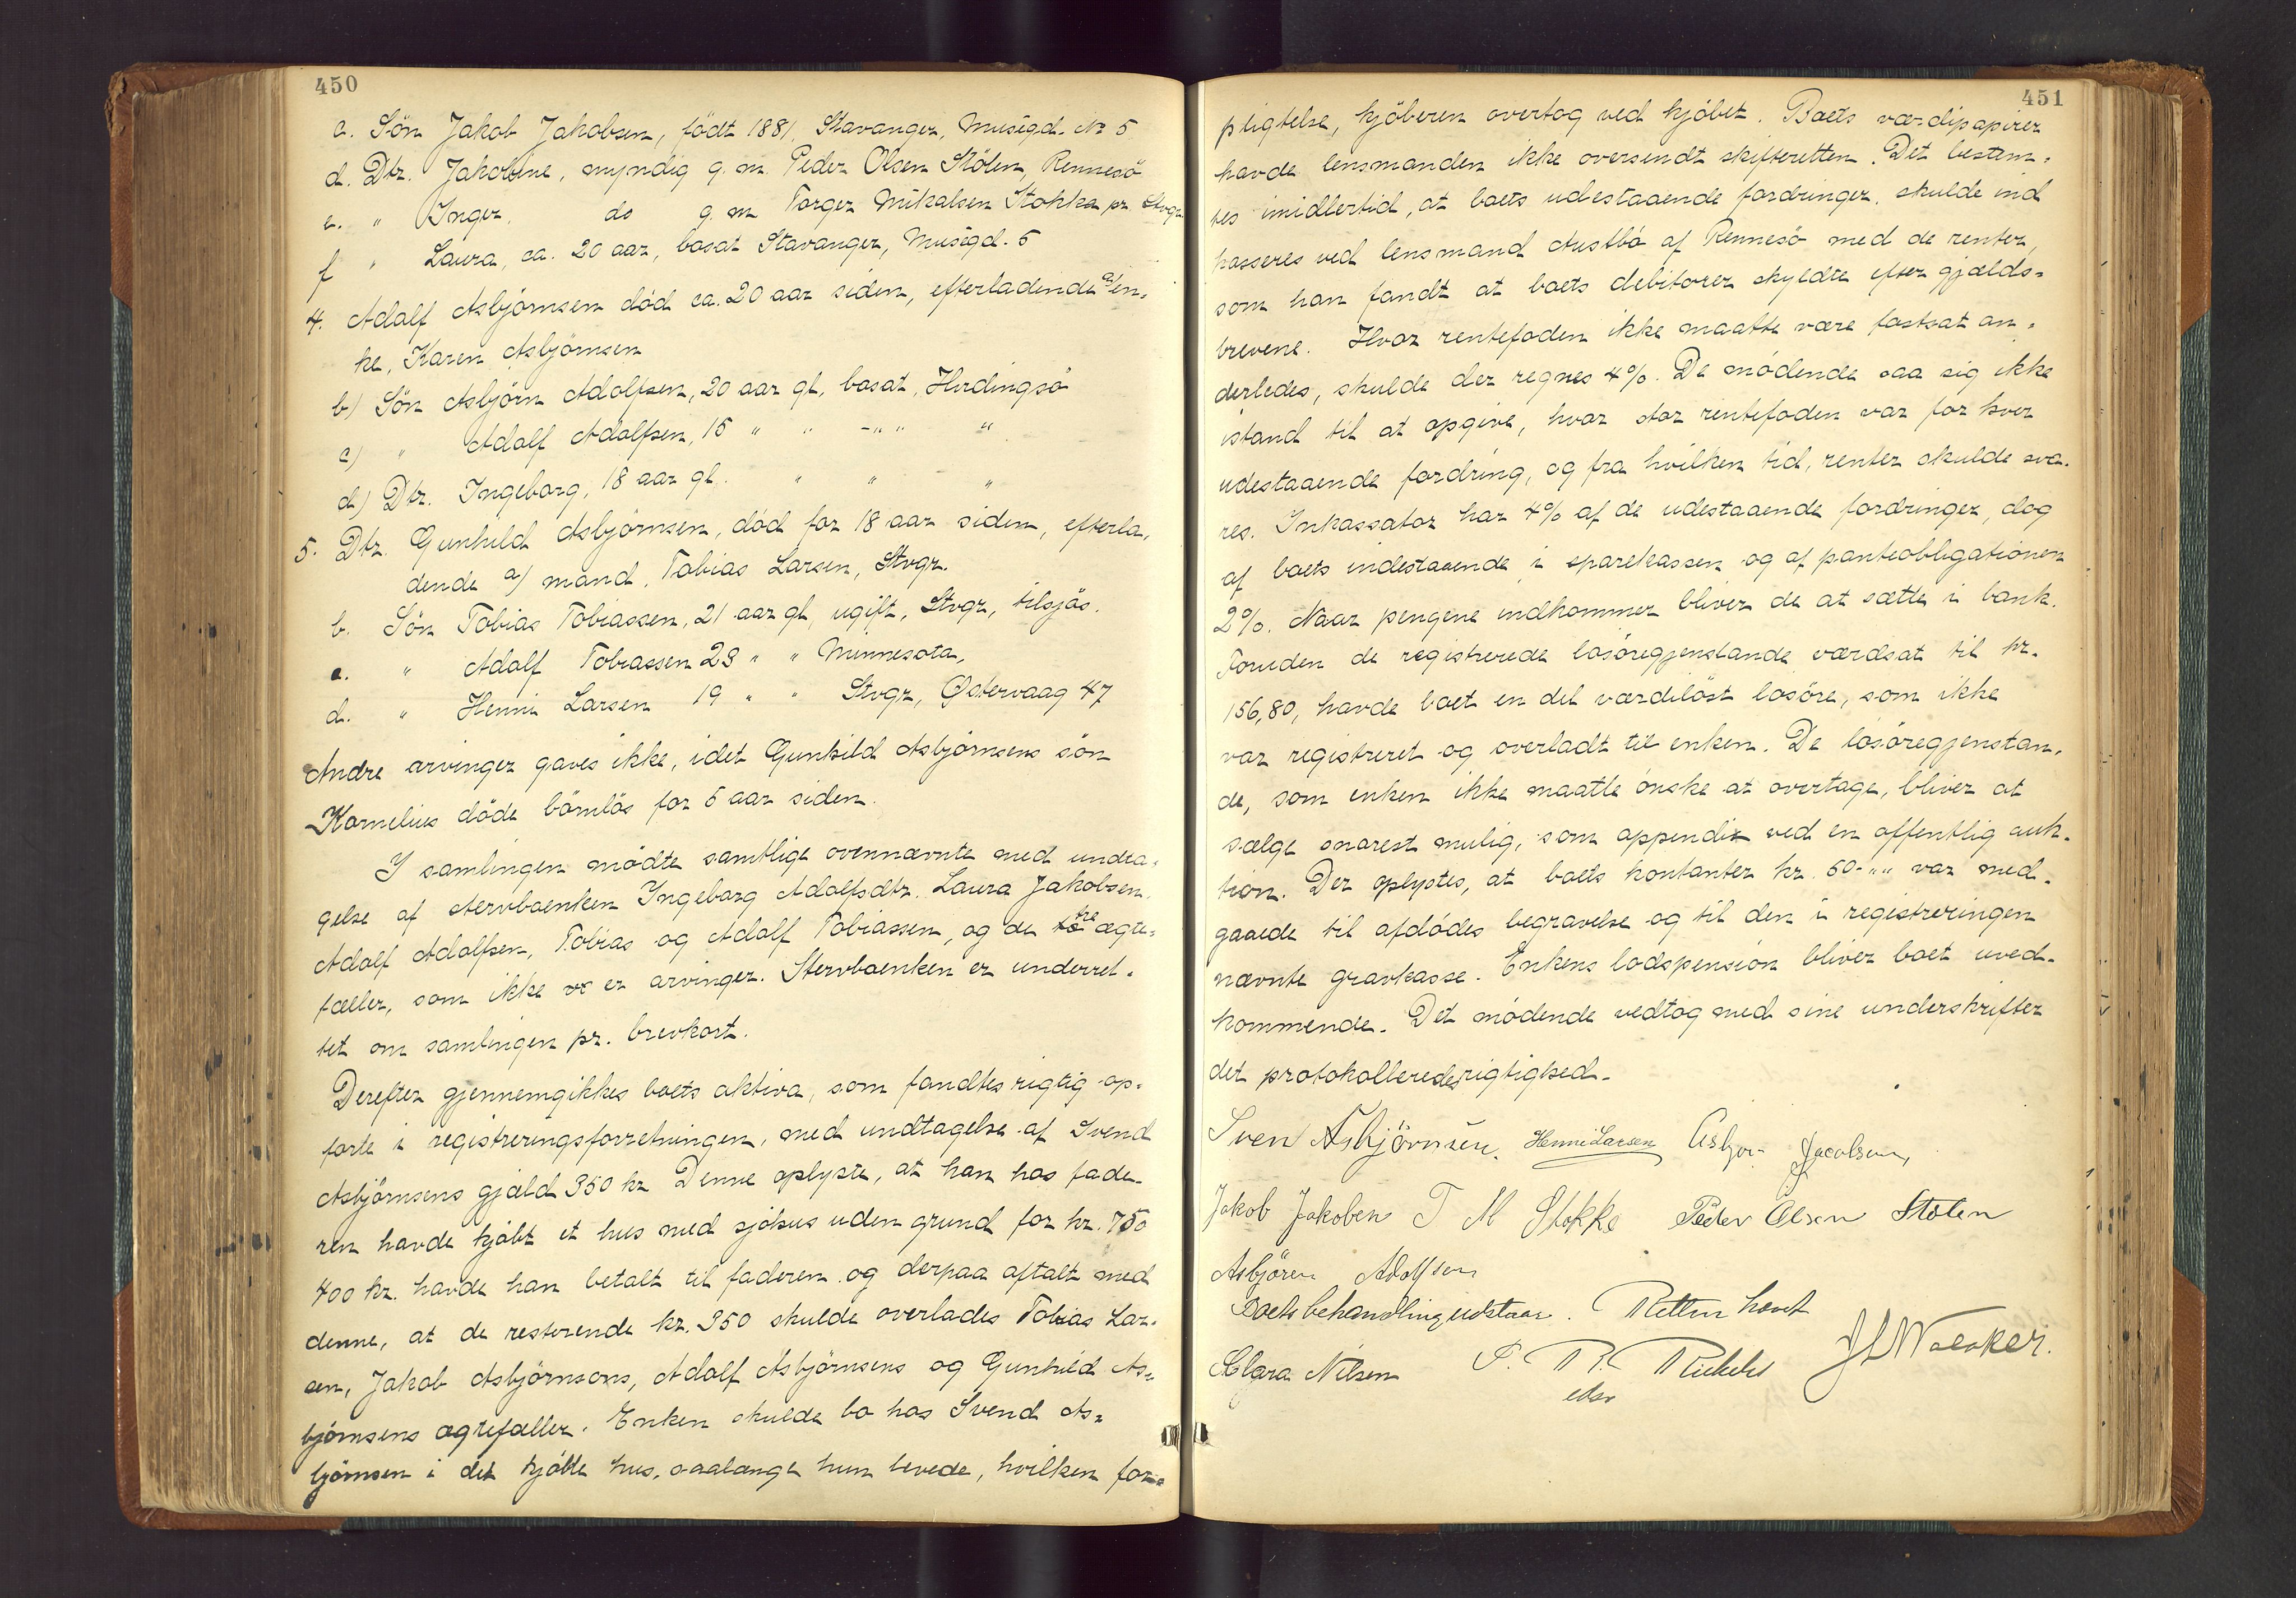 450
c. Sön Jakob Jakobsen, födt 1881, Stavanger, Musegd. No 5
d. Dtr. Jakobine, myndig g. m. Peder Olsen Stölen, Rennesö
e. " Inger, do g. m Torger Mikalsen Stokka pr. Stvgr.
f " Laura, ca. 20 aar, bosat Stavanger, Musegd. 5
4. Adolf Asbjörnsen död ca. 20 aar siden, efterladende a) en-
ke, Karen Asbjörnsen
b) Sön Asbjörn Adolfsen, 20 aar gl, bosat, Hirdingsö
c) " Adolf Adolfsen, 15 " " -"" "
d) Dtr. Ingeborg, 18 aar gl. " " "
5. Dtr. Gunhild Asbjörnsen, död for 18 aar siden, efterla-
dende a) mand, Tobias Larsen, Stvgr.
b. Sön Tobias Tobiassen, 21 aar gl, ugift, Stvgr, tilsjös.
c. " Adolf Tobiassen 23 " " Minnesota,
d. " Henni Larsen 19 " " Stvgr, Østervaag 47
Andre arvinger gaves ikke, idet Gunhild Asbjörnsens sön
Kornelius döde börnlös for 5 aar siden.
I samlingen mödte samtlige ovennævnte med undta-
gelse af stervboenken Ingeborg Adolfsdtr. Laura Jakobsen,
Adolf Adolfsen, Tobias og Adolf Tobiassen, og de to tre ægte-
fæller, som ikke er arvinger. Stervboenken er underret-
tet om samlingen pr. brevkort.
Derefter gjennemgikkes boets aktiva, som fandtes rigtig op-
förte i registreringsforretningen, med undtagelse af Svend
Asbjörnsens gjæld 350 kr Denne oplyste, at han hos fade-
ren havde kjöbt et hus med sjöhus uden grund for kr. 750
400 kr. havde han betalt til faderen og derpaa aftalt med
denne, at de resterende kr. 350 skulde overlades Tobias Lar-
sen, Jakob Asbjörnsens, Adolf Asbjörnsens og Gunhild As-
björnsens ægtefæller. Enken skulde bo hos Svend As-
björnsen i det kjöbte hus, saalænge hun levede, hvilken for-
451
pligtelse, kjöberen overtog ved kjöbet. Boets værdipapirer
havde lensmanden ikke oversendt skifteretten. Det bestem-
tes imidlertid, at boets udestaaende fordringer, skulde ind
kasseres ved lensmand Austbö af Rennesö med de renter,
som han fandt at boets debitorer skyldte efter gjælds-
brevene. Hvor rentefoden ikke maatte være fastsat an-
derledes, skulde der regnes 4%. De mödende saa sig ikke
istand til at opgive, hvor stor rentefoden var for hver
udestaaende fordring, og fra hvilken tid, renter skulde sva-
res. Inkassator har 4% af de udestaaende fordringer, dog
af boets indestaaende i sparekassen og af panteobligationen
2%. Naar pengene indkommer bliver de at sætte i bank.
Foruden de registrerede lösöregjenstande værdsat til kr.
156,80, havde boet en del værdilöst lösöre, som ikke
var registreret og overladt til enken. De lösöregjenstan-
de, som enken ikke maatte önske at overtage, bliver at
sælge snarest mulig, som appendix ved en offentlig auk-
tion. Der oplystes, at boets kontanter kr. 50-"" var med-
gaaede til afdödes begravelse og til den i registreringen
nævnte gravkasse. Enkens lodspension bliver boet uved-
kommende. Det mödende vedtog med sine underskrifter
det protokolleredes rigtighed.
Sven Asbjörnsen. Henni Larsen Asbjör Jacobsen,
Jakob Jakobsen T M Stokke Peder Olsen Stölen
Asbjören Adolfsen
Boets behandling udstaar. Retten hævet
Clara Nilsen